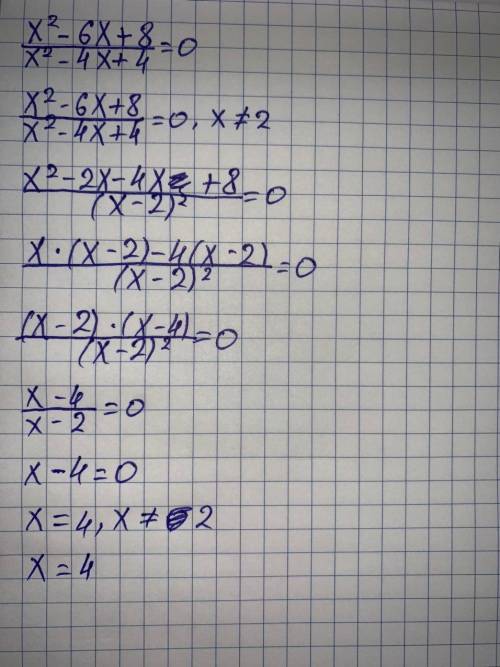 x² - 6x + 8 / x² - 4x + 4 = 0
x² - 6x + 8 / x² - 4x + 4 = 0, x ≠ 2
x² - 2x - 4x + 8 / (x - 2)² = 0
x · (x - 2) - 4(x - 2) / (x - 2)² = 0
(x - 2) · (x - 4) / (x - 2)² = 0
x - 4 / x - 2 = 0
x - 4 = 0
x = 4, x ≠ 2
x = 4